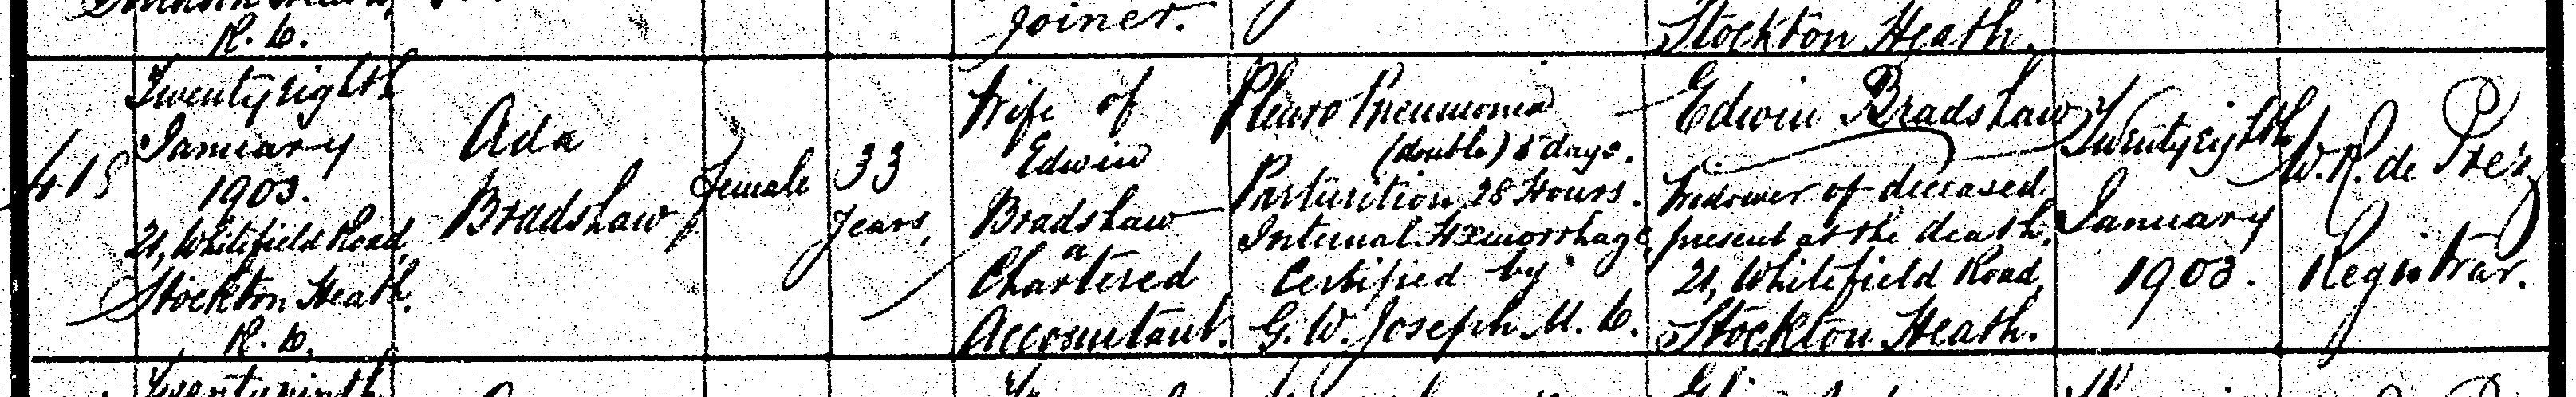 Joiner.
R. C.
Stockton Heath.
415
Twentyeighth
January
1903.
21, Whitefield Road,
Stockton Heath.
R. C.
Ada
Bradshaw
Female
33
years,
Wife of
Edwin
Bradshaw
a
Chartered
Accountant.
Pleuro Pneumonia
(double) 5 days.
Parturition 28 Hours.
Internal Hæmorrhage,
Certified by
G. W. Joseph M. C.
Edwin Bradshaw
Widower of deceased
present at the death,
21, Whitefield Road,
Stockton Heath.
Twentyeighth
January
1903.
W. R. de Prez
Registrar.
Twentyninth